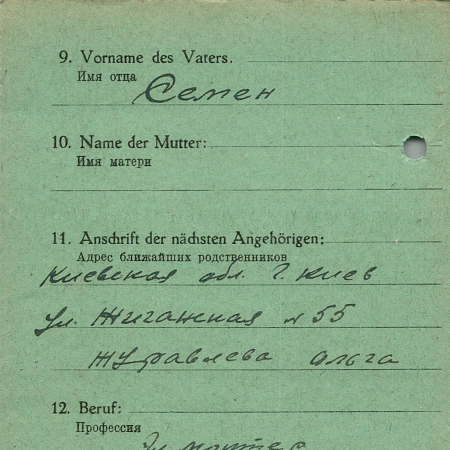 9. Vorname des Vaters.
Имя отца
Семен
10. Name der Mutter:
Имя матери
11. Anschrift der nächsten Angehörigen:
Адрес ближайших родственников
Киевская обл. г. Киев
ул. Жиганская № 55
Журавлева Ольга
12. Beruf:
Профессия